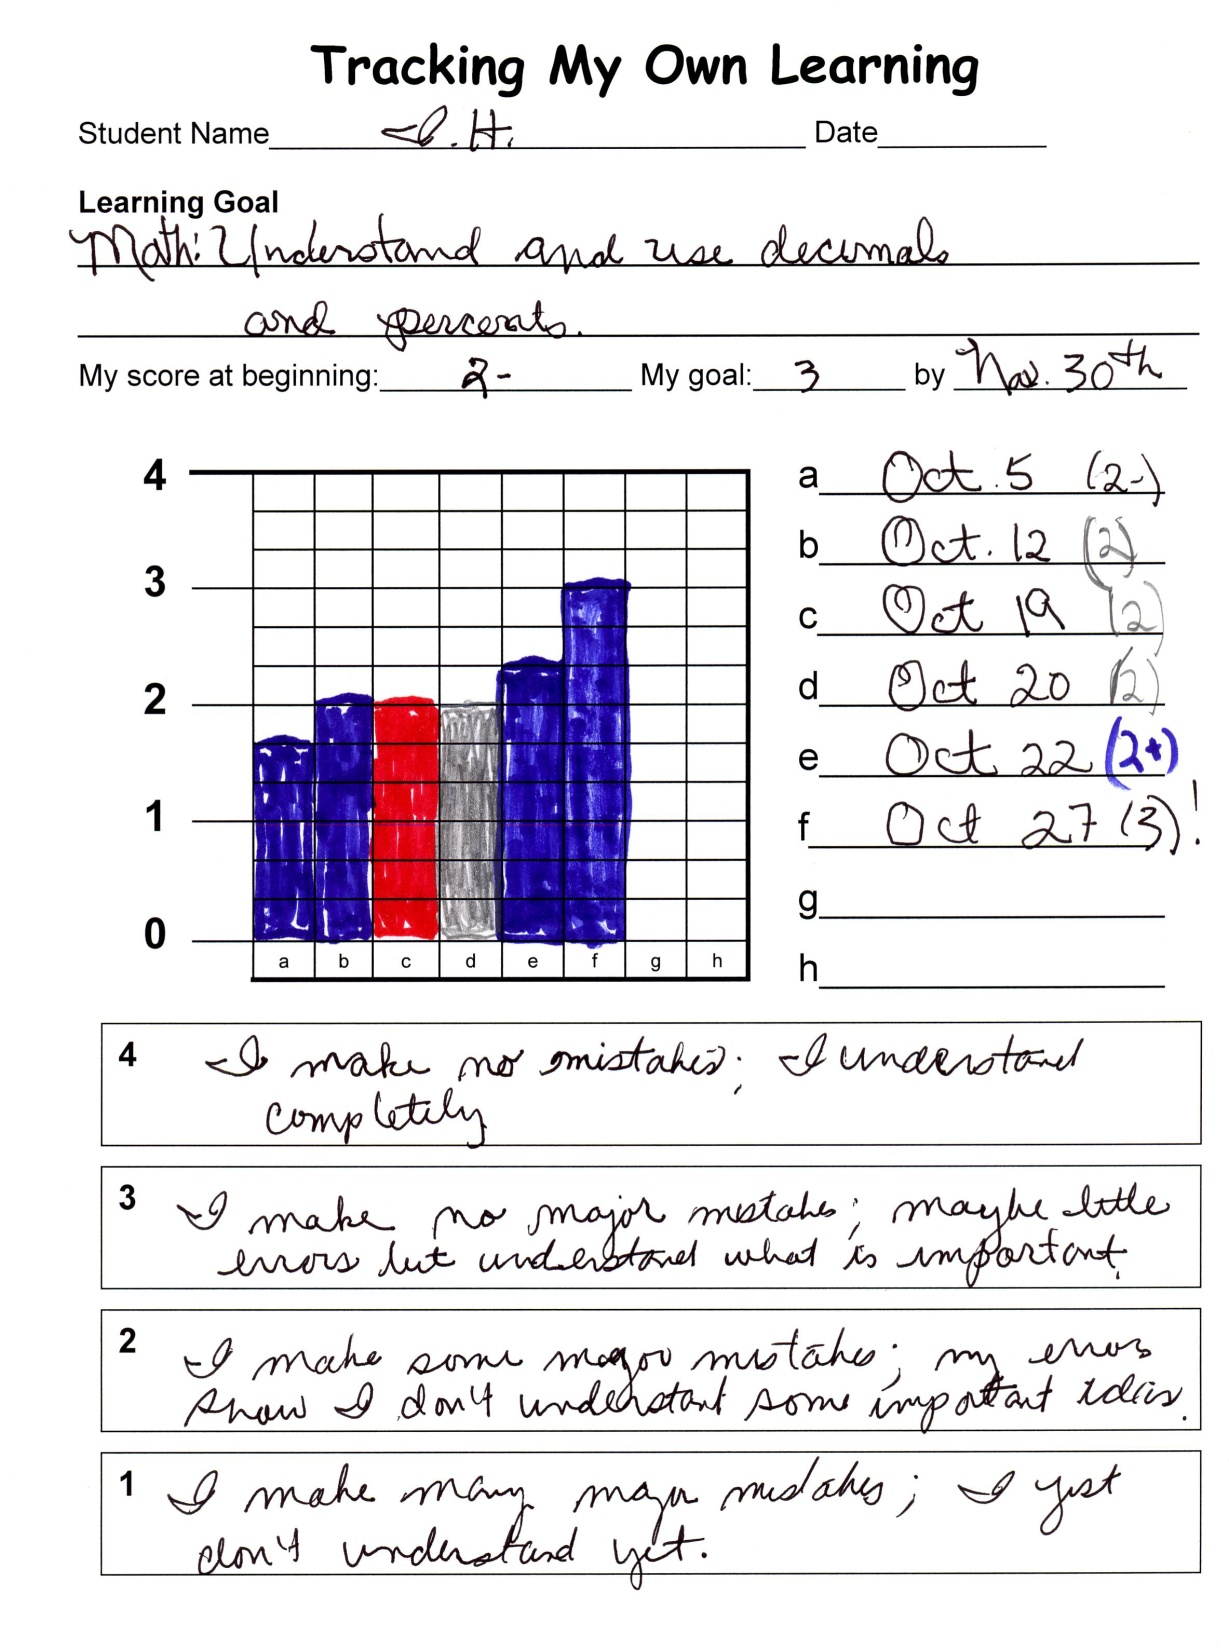 Tracking My Own Learning
Student Name I.H. Date
Learning Goal
Math: Understand and use decimals
and percents.
My score at beginning: 2- My goal: 3 by Nov. 30th
4
3
2
1
0
a b c d e f g h
a Oct. 5 (2-)
b Oct. 12 (2)
c Oct 19 (2)
d Oct 20 (2)
e Oct 22 (2+)
f Oct 27 (3)!
g
h
4 I make no mistakes; I understand
completely
3 I make no major mistakes; maybe little
errors but understand what is important.
2 I make some major mistakes; my errors
show I don't understant some important ideas.
1 I make many major mistakes; I just
don't understand yet.